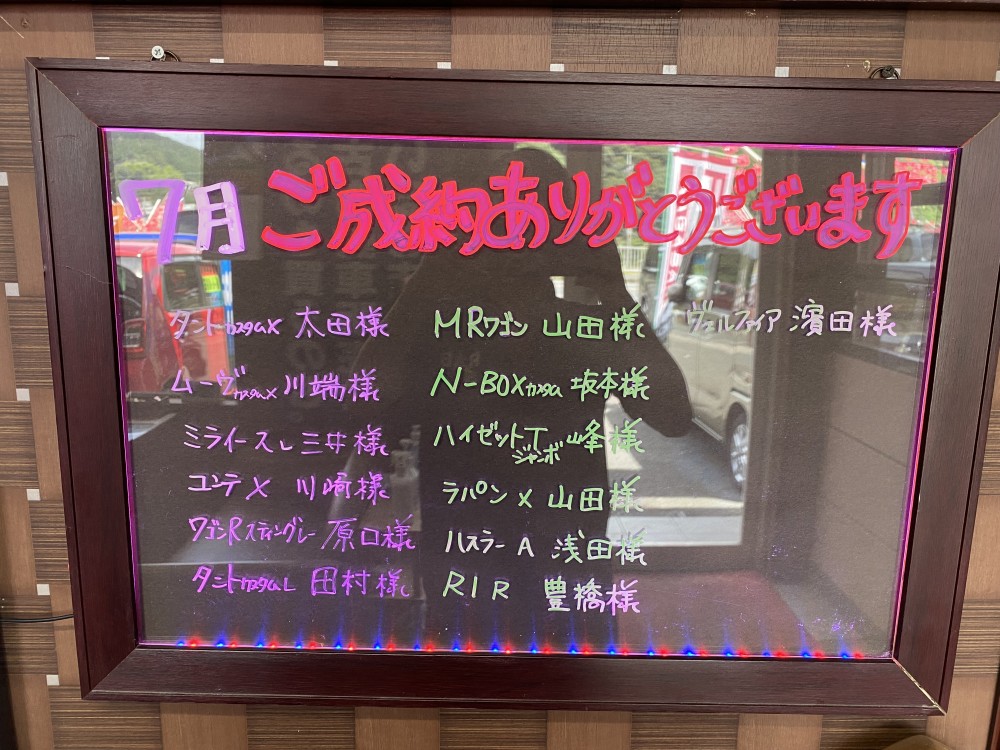 7月 ご成約ありがとうございます
タントカスタムX 太田様
ムーヴカスタムX 川端様
ミライースL 三井様
コンテX 川崎様
ワゴンRスティングレー 原口様
タントカスタムL 田村様
MRワゴン 山田様
N-BOXカスタム 坂本様
ハイゼットTジャンボ 峰様
ラパンX 山田様
ハスラーA 浅田様
R1R 豊橋様
ヴェルファイア 濱田様